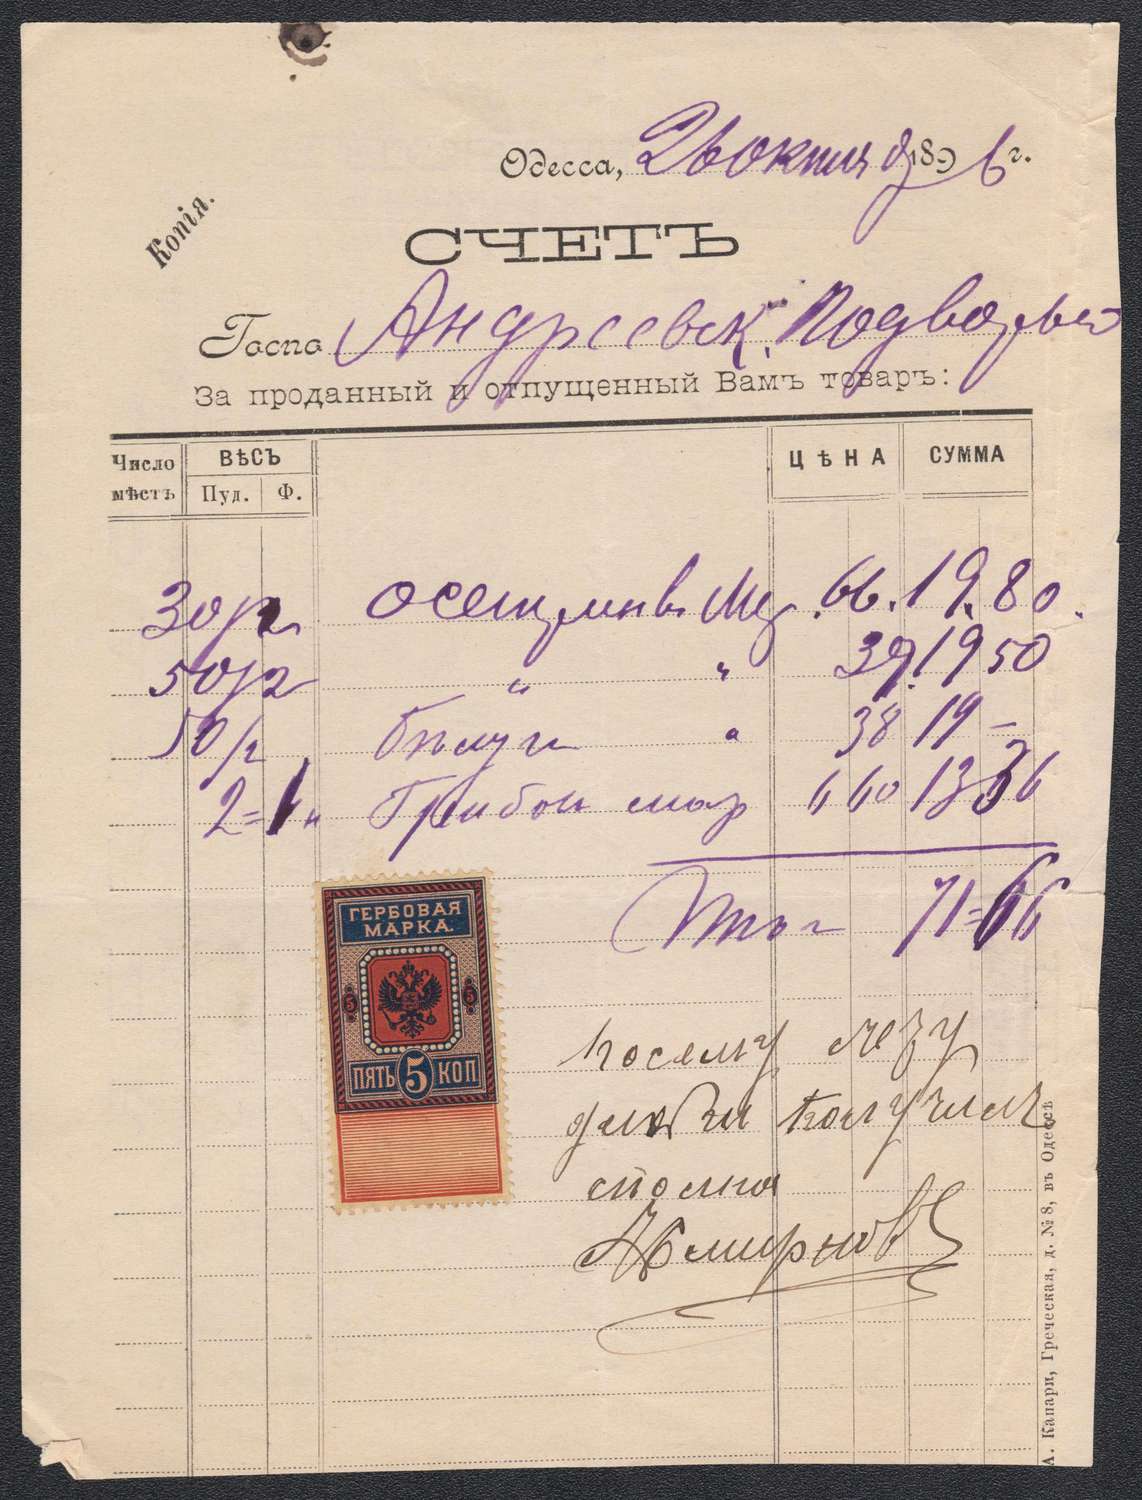 Одесса, 26 октя 1896 г.
Копія.
СЧЕТЪ
Госпо Андреевск. Подворью
За проданный и отпущенный Вамъ товаръ:
Число мѣстъ ВѢСЪ Пуд. Ф. ЦѢНА СУММА
30 р 66. 19.80.
50 р " " 39. 19 50
50/ Бѣлуги " 38 19 –
2=1 Грибов 6 60 13 36
Итог 71=66
ГЕРБОВАЯ
МАРКА.
5 5
ПЯТЬ 5 КОП
По сему
получил
сполна
Смирнов
А. Капари, Греческая, д. № 8, въ Одессѣ